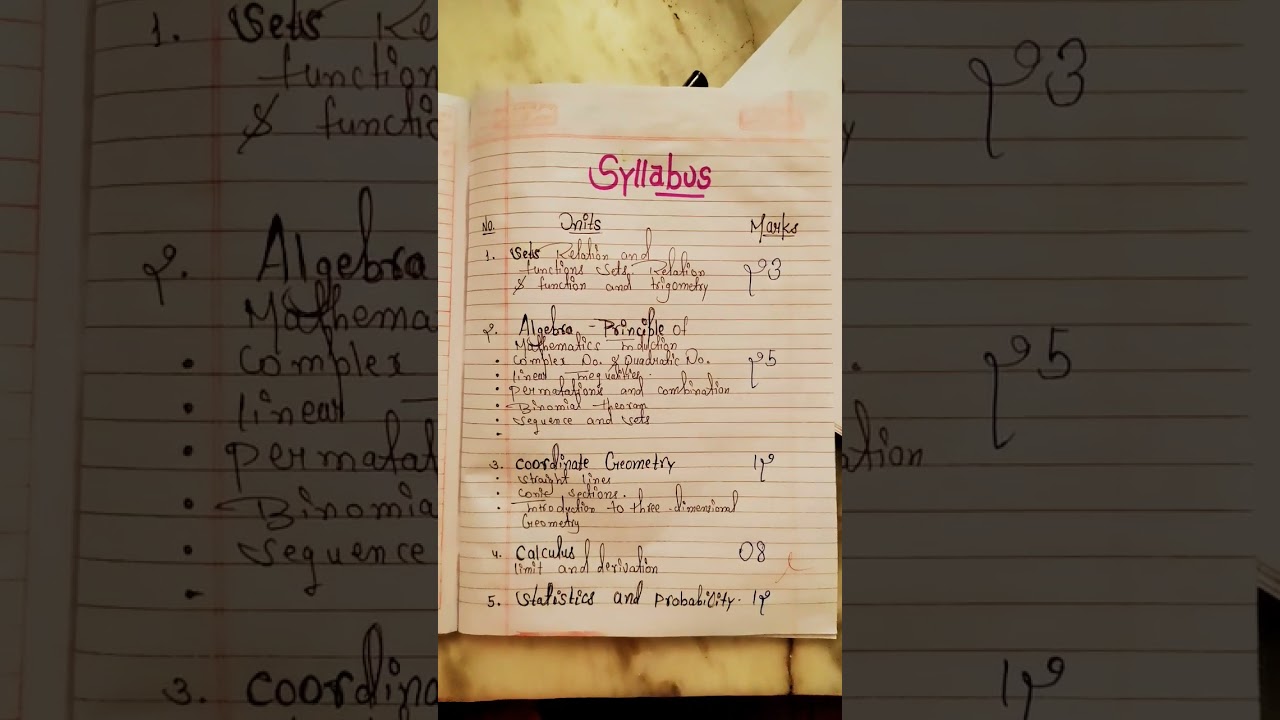 Syllabus
No. Units Marks
1. Sets Relation and
functions sets. Relation 23
& function and trigometry
2. Algebra - Principle of
Mathematics Induction
• Complex No. & Quadratic No. 25
• linear Inequalities.
• Permatations and combination
• Binomial theoram
• Sequence and sets
•
3. Coordinate Geometry 12
• Straight lines
• Conic sections.
• Introduction to three-dimensional
Geometry
4. Calculus 08
limit and derivation
5. Statistics and Probability. 12